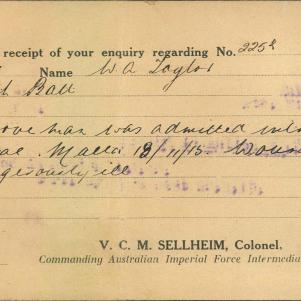 receipt of your enquiry regarding No. 225
Name W A Taylor
Batt
ove man was admitted into
Malta 13/11/15 Woun
gerously ill
V. C. M. SELLHEIM, Colonel.
Commanding Australian Imperial Force Intermedia